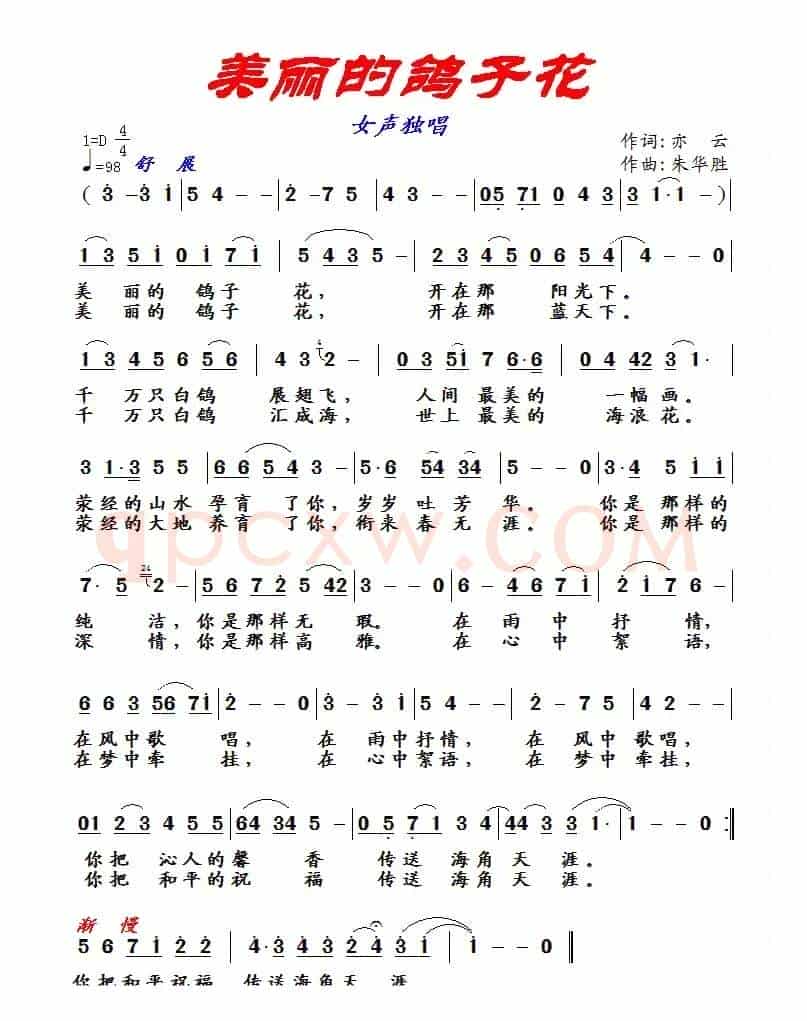 美丽的鸽子花
女声独唱
1=D 4/4
作词: 亦 云
♩=98 舒 展
作曲: 朱华胜
( 3 - 3 i | 5 4 - - | 2 - 7 5 | 4 3 - - | 05 71 0 4 3 | 3 1 · 1 - )
1 3 5 1 0 1 7 1 | 5 4 3 5 - | 2 3 4 5 0 6 5 4 | 4 - - 0
美 丽的 鸽子 花, 开在那 阳光下。
美 丽的 鸽子 花, 开在那 蓝天下。
1 3 4 5 6 5 6 | 4 3 2 - | 0 3 51 7 6·6 | 0 4 42 3 1·
千 万只白鸽 展翅飞, 人间 最美的 一幅画。
千 万只白鸽 汇成海, 世上 最美的 海浪花。
3 1·3 5 5 | 6 6 5 4 3 - | 6·6 54 34 | 5 - - 0 | 3·4 5 1 1
荥经的山水 孕育 了你, 岁岁 吐芳 华。 你是 那样的
荥经的大地 养育 了你, 衔来 春无 涯。 你是 那样的
qpcxw.COM
7·5 2 - | 5 6 7 2 5 42 | 3 - - 0 | 6 - 4 6 7 1 | 2 1 7 6 -
纯 洁, 你是那样无 瑕。 在 雨中 抒 情,
深 情, 你是那样高 雅。 在 心中 絮 语,
6 6 3 56 71 | 2 - - 0 | 3 - 3 1 | 5 4 - - | 2 - 7 5 | 4 2 - -
在风中歌 唱, 在 雨中抒情, 在 风中歌唱,
在梦中牵 挂, 在 心中絮语, 在 梦中牵挂,
01 2 3 4 5 5 | 64 34 5 - | 0 5 7 1 3 4 | 44 3 3 1· | 1 - - 0 :||
你把 沁人的馨 香 传送 海角天涯。
你把 和平的祝 福 传送 海角天涯。
渐 慢
5 6 7 1 2 2 | 4·3 4 3 2 4 3 1 | 1 - - 0 ||
你把和平祝福 传送海角天 涯